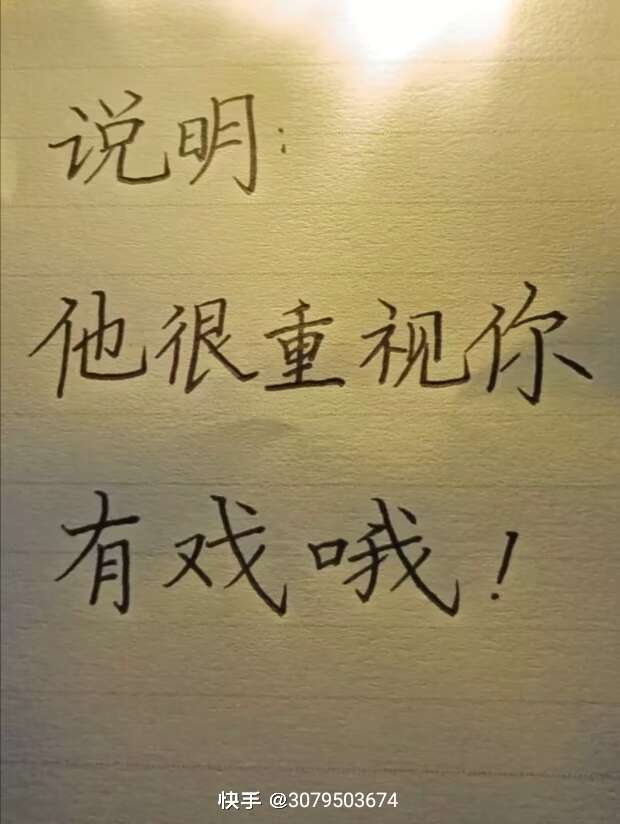 说明:
他很重视你
有戏哦!
快手 @3079503674